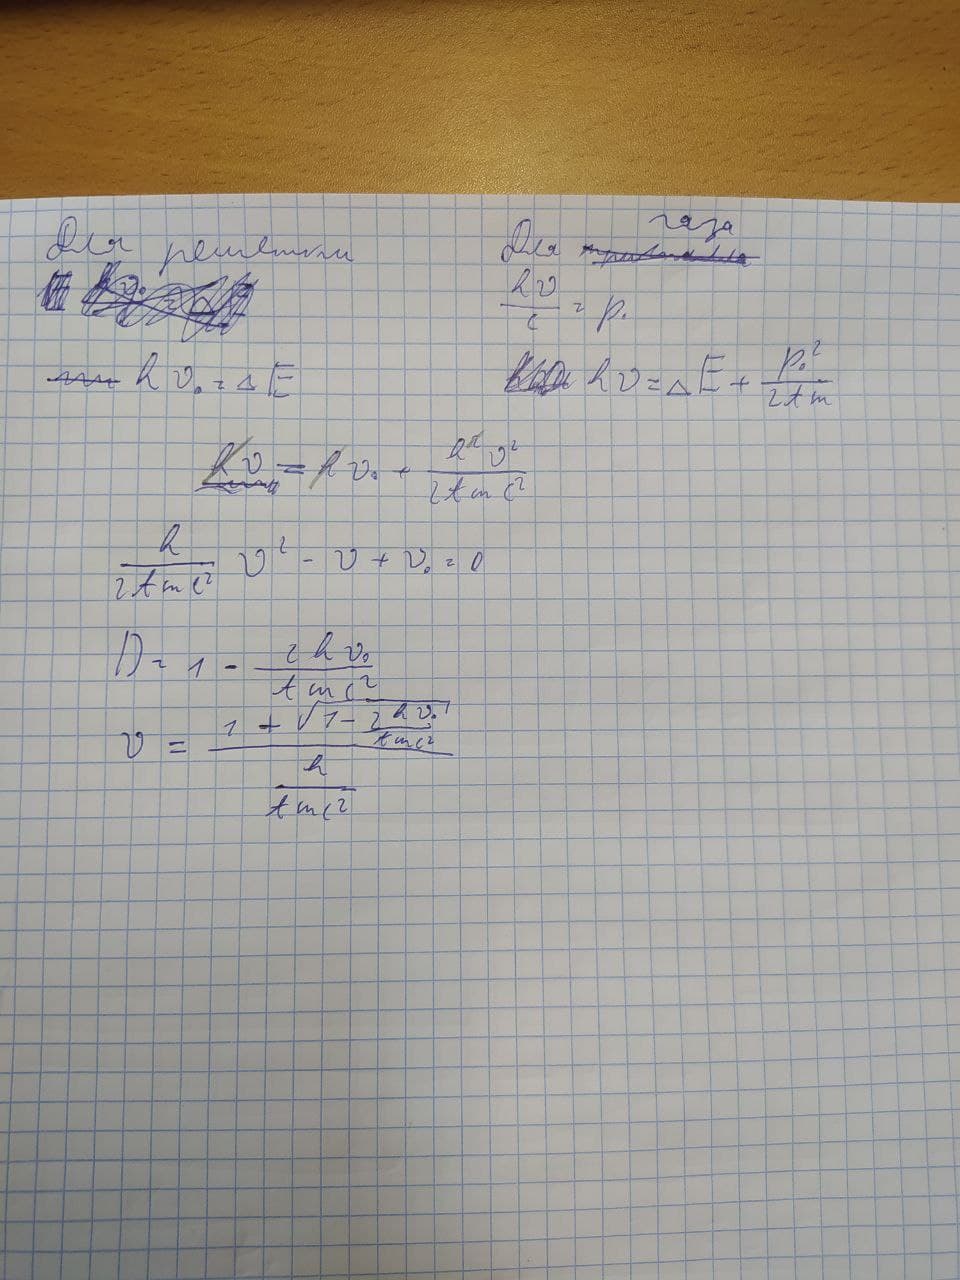 Для решетки
hν₀ = ΔE
Для газа
hν/c = p₀
hν = ΔE + p₀²/2tm
hν = hν₀ + h²ν²/2tmc²
h/2tmc² ν² - ν + ν₀ = 0
D = 1 - 2hν₀/tmc²
ν = (1 + √(1 - 2hν₀/tmc²))/(h/tmc²)